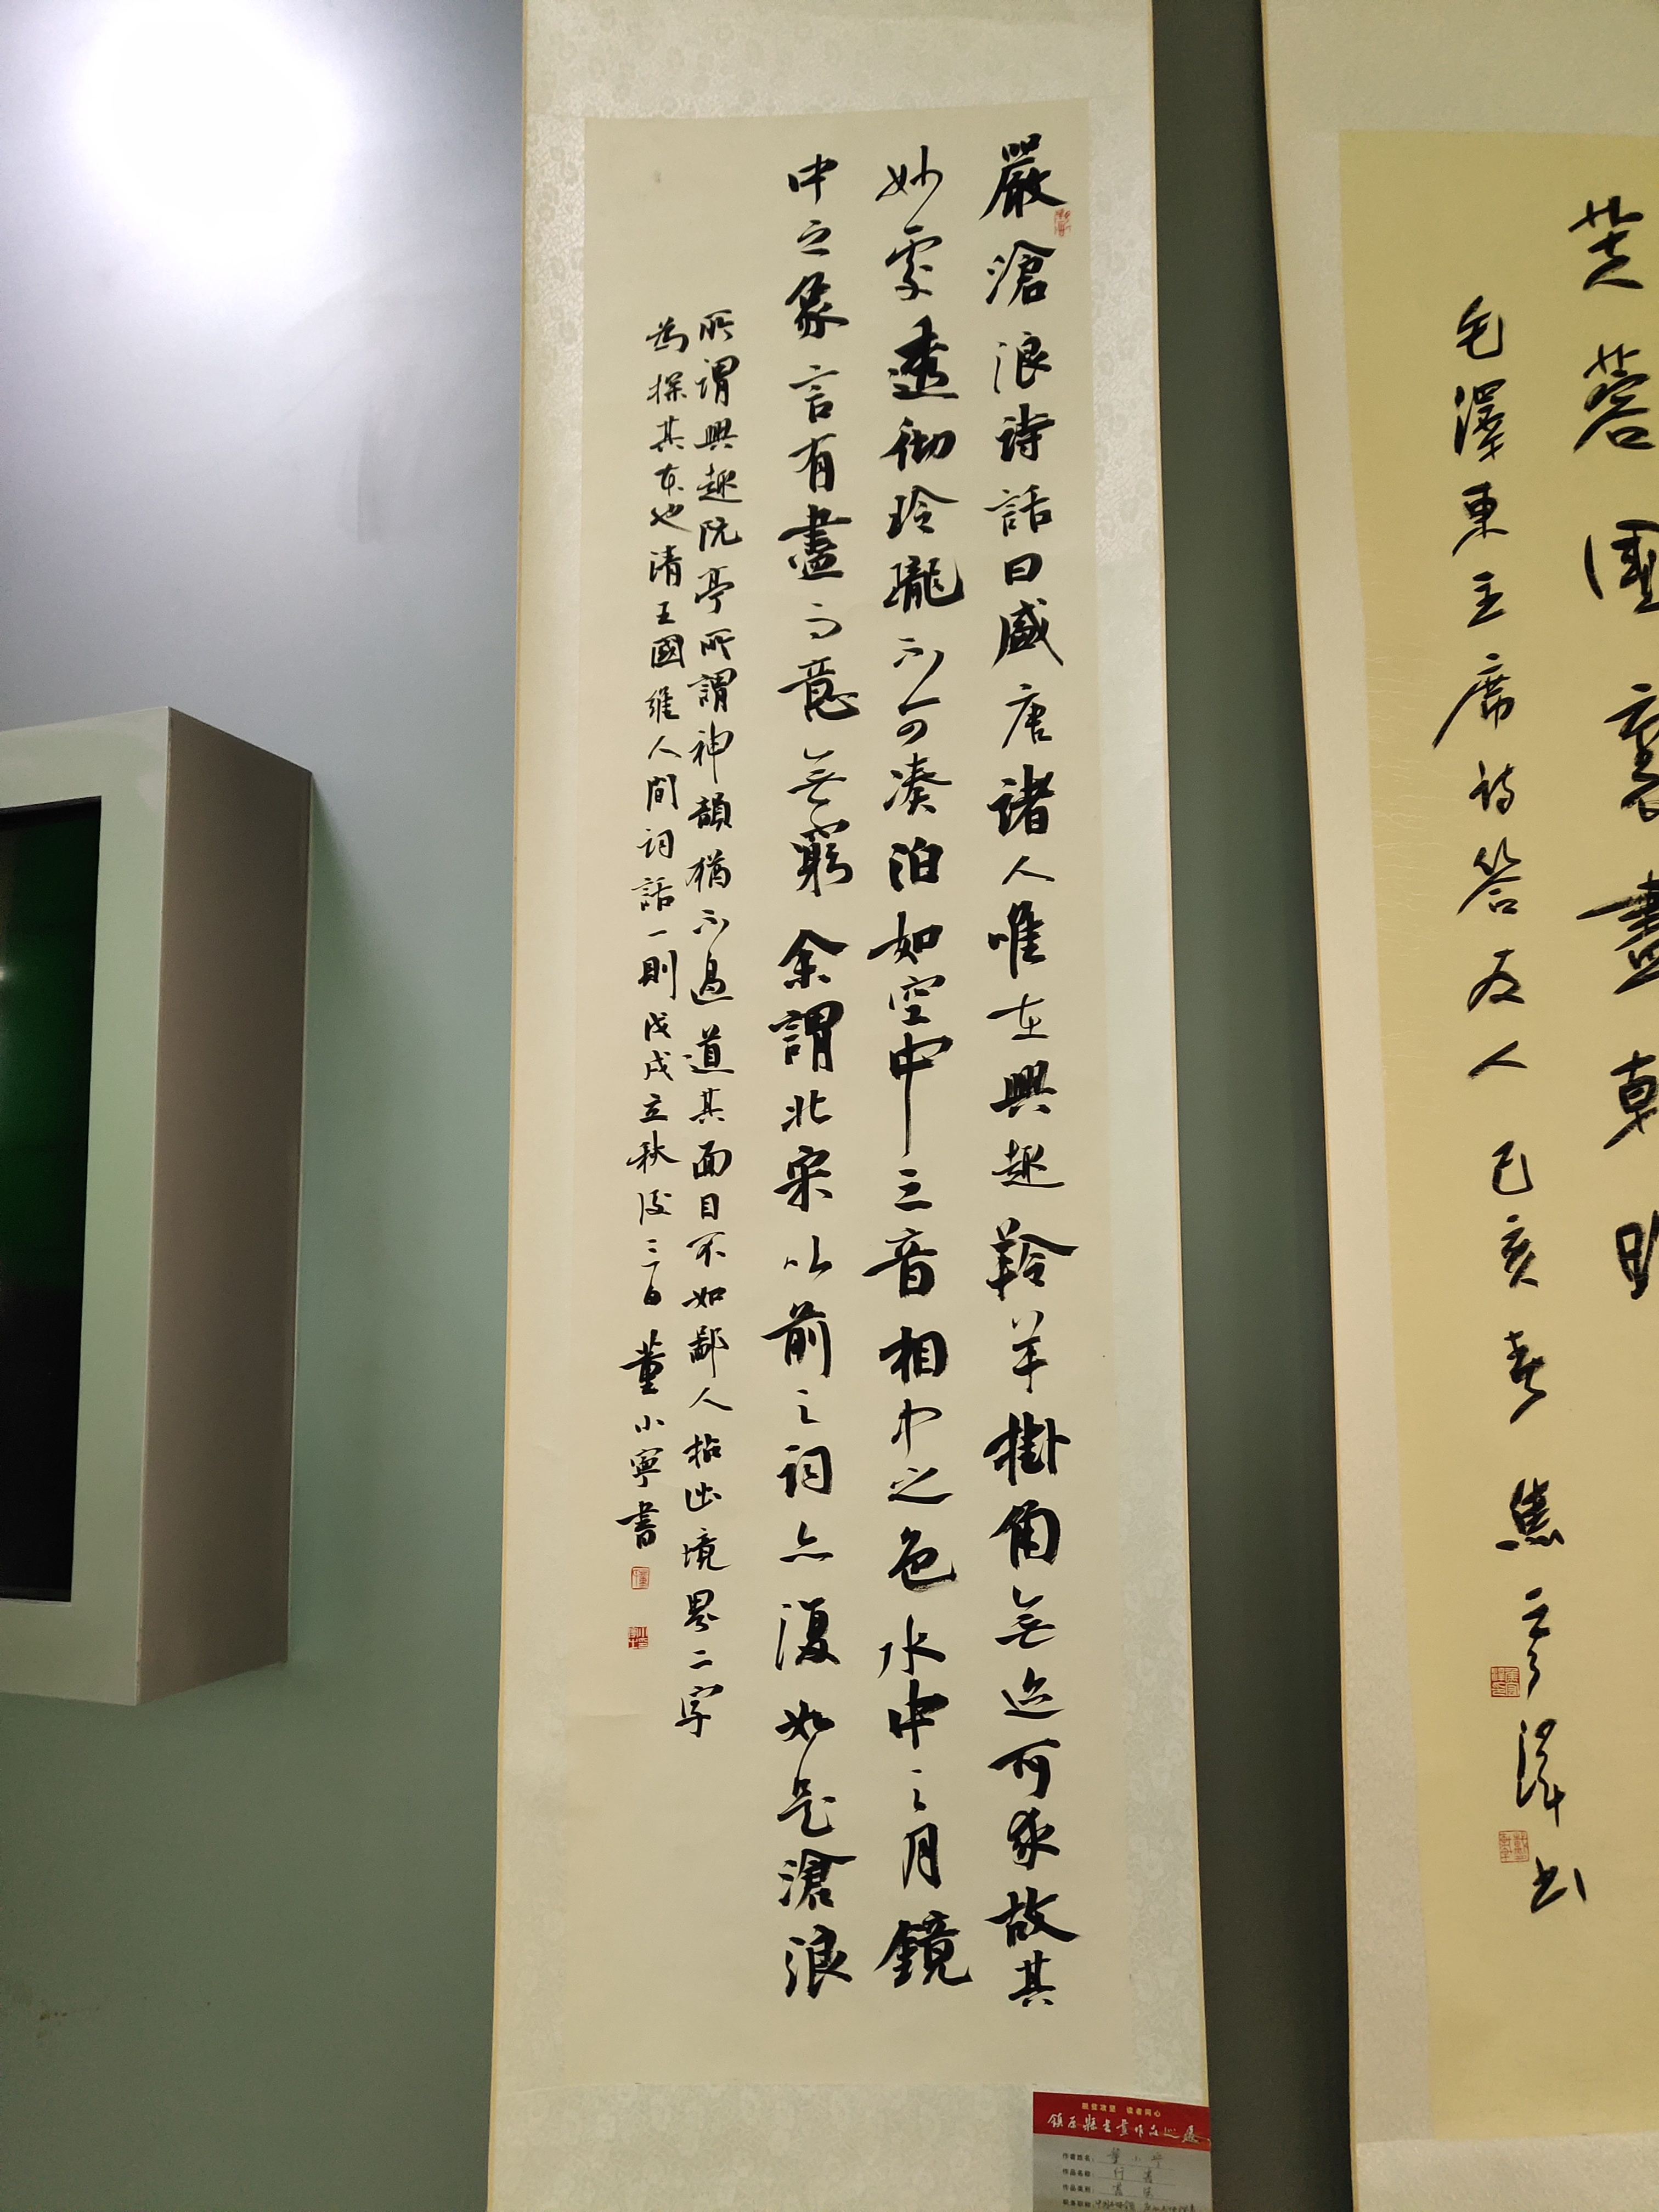 嚴滄浪詩話曰盛唐諸人唯在興趣羚羊掛角無迹可求故其
妙處透徹玲瓏不可湊泊如空中之音相中之色水中之月鏡
中之象言有盡而意無窮余謂北宋以前之詞亦復如是滄浪
所謂興趣阮亭所謂神韻猶不過道其面目不如鄙人拈出境界二字
為探其本也清王國維人間詞話一則戊戌立秋後三日董小寧書
芙蓉國裏盡朝暉
毛澤東主席詩答友人己亥春焦
脱贫攻坚 读者同心
鎮原縣書畫作品巡展
作者姓名:董小宁
作品名称:行書
作品类别:書法